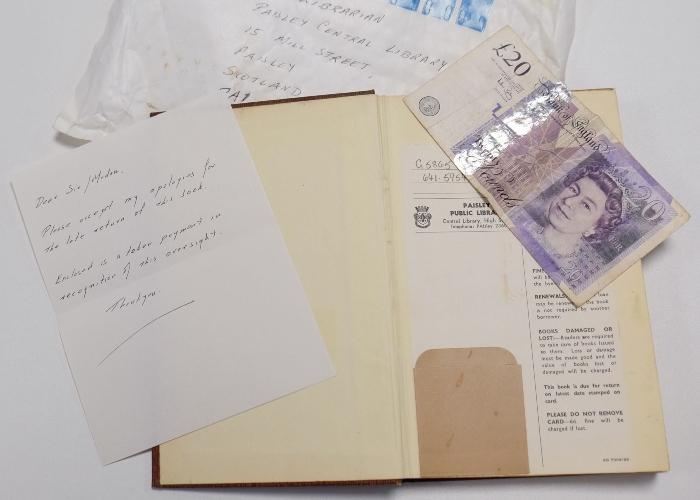 LIBRARIAN
PAISLEY CENTRAL LIBRARY
15 MILL STREET,
PAISLEY
SCOTLAND
Dear Sir/Madam,
Please accept my apologies for
the late return of this book.
Enclosed is a token payment in
recognition of this oversight.
Thankyou
£20
Bank of England
Twenty
Pounds
20
£20
PAISLEY
PUBLIC
Central Library, High
RENEWALS
may be
is not required by another
borrower.
BOOKS DAMAGED OR
LOST:—Readers are required
to take care of books issued
to them. Loss or damage
must be made good and the
value of books lost or
damaged will be charged.
This book is due for return
on latest date stamped on
card.
PLEASE DO NOT REMOVE
CARD—6d fine will be
charged if lost.